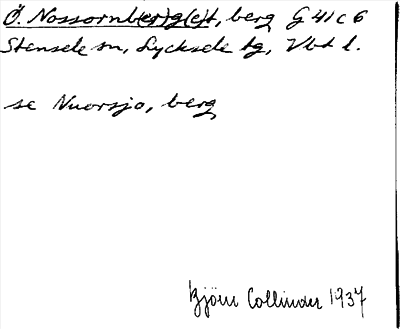 Ö. Nossornb(er)g(e)t, berg G 41 c 6
Stensele sn, Lycksele tg, Vbt l.
se Nuorsjo, berg
Björn Collinder 1937